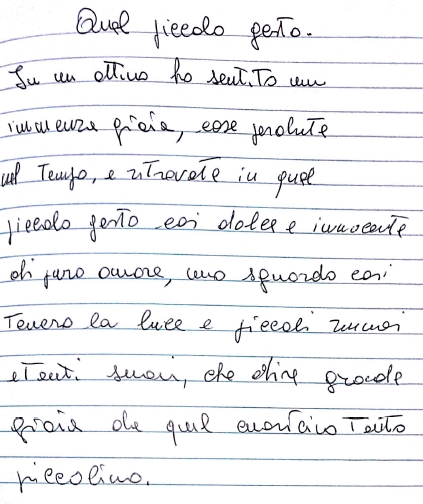 Quel piccolo gesto.
In un attimo ho sentito un
immenza gioia, cose perdute
nel Tempo, e ritrovate in quel
piccolo gesto così dolce e innocente
di puro amore, uno sguardo così
Tenero la luce e piccoli rumori
e Tanti suoni, che dire grande
gioia da quel cuoricino Tanto
piccolino.